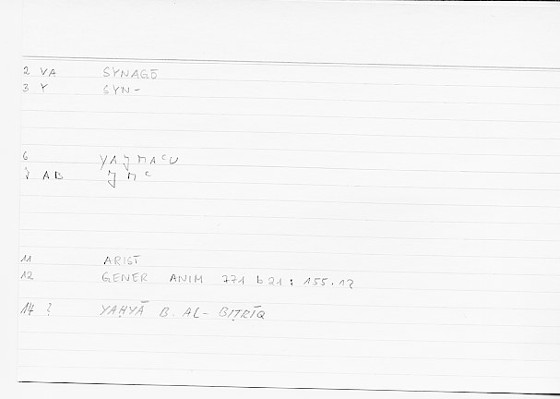 2 VA SYNAGŌ
3 Y SYN-
6 YAJMAʿU
7 AB JMʿ
11 ARIST
12 GENER ANIM 771 b21 : 155.12
14 ? YAḤYĀ B. AL-BIṬRĪQ